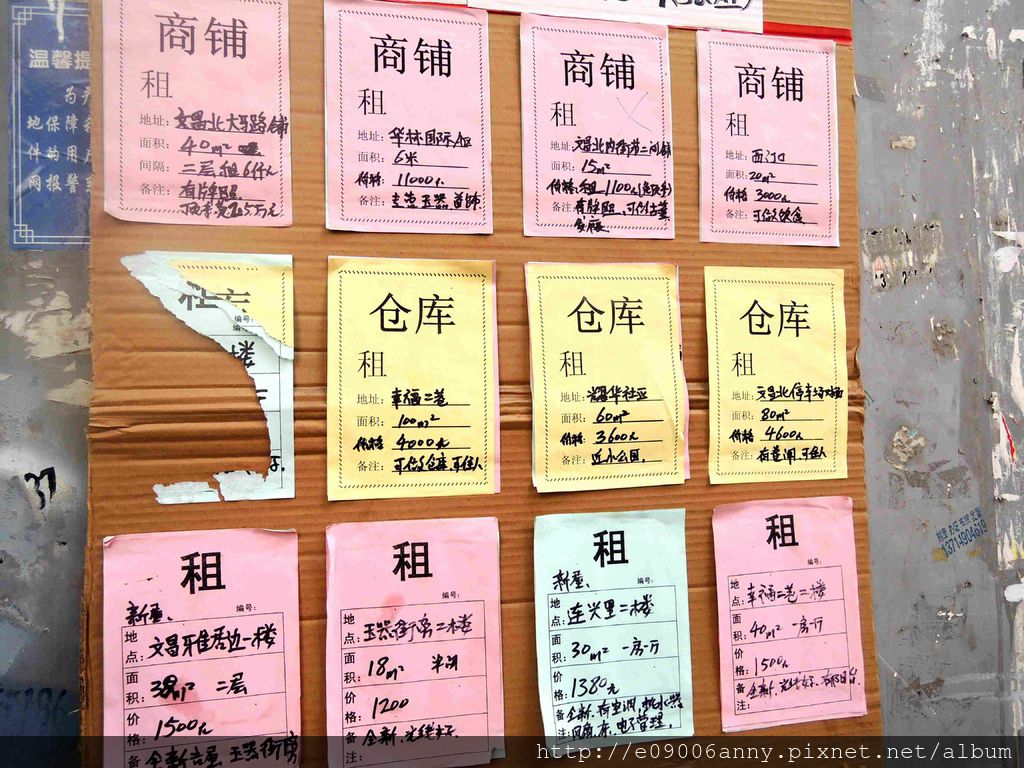 温馨提
地保障
网报警
商铺
租
地址: 文昌北大马路铺
面积: 40m²
间隔: 二层.租6仟元
备注: 有牌照.
商铺
租
地址: 华林国际A区
面积: 6米
价格: 11000元.
备注:
商铺
租
地址: 文昌北内街第二间铺
面积: 15m²
价格: 租1100元
备注: 有牌照.可做古董
商铺
租
地址: 西门口
面积: 20m²
价格: 3000元
备注: 可做饮食
编号:
仓库
租
地址: 幸福二巷
面积: 100m²
价格: 4000元
备注: 可做仓库.可住人
仓库
租
地址: 耀华社区
面积: 60m²
价格: 3600元
备注: 近小公园.
仓库
租
地址: 文昌北停车场对面
面积: 80m²
价格: 4600元
备注: 有空调.可住
租
新屋、
编号:
地点: 文昌雅集旁边一楼
面积: 38m² 二层
价格: 1500元
备 全新吉屋 玉器街旁
租
编号:
地点: 玉器街旁二楼
面积: 18m²
价格: 1200
备注: 全新.光线好.
租
新屋、
编号:
地点: 连兴里二楼
面积: 30m² 一房一厅
价格: 1380元
备注: 全新.有空调,热水器
电子管理,
租
编号:
地点: 幸福二巷二楼
面积: 40m² 一房一厅
价格: 1500元
备注: 全新.光线好.
13719904679
http://e09006anny.pixnet.net/album